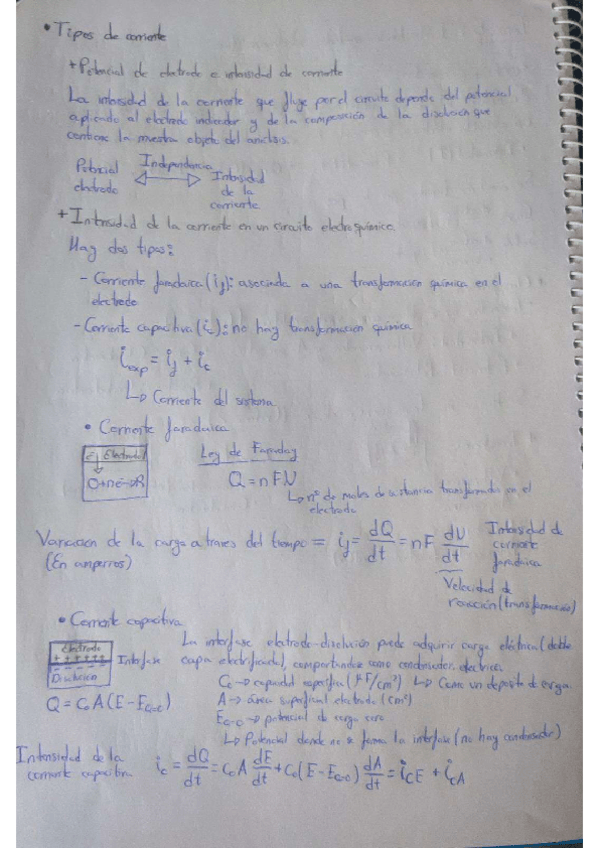 • Tipos de corriente
+ Potencial de electrodo e intensidad de corriente
La intensidad de la corriente que fluye por el circuito depende del potencial
aplicado al electrodo indicador y de la composición de la disolución que
contiene la muestra objeto del análisis.
Potencial electrodo ⟺ Intensidad de la corriente
Independencia
+ Intensidad de la corriente en un circuito electroquímico
Hay dos tipos:
- Corriente faradaica (if): asociada a una transformación química en el
electrodo
- Corriente capacitiva (ic): no hay transformación química
iexp = if + ic
↳ Corriente del sistema
• Corriente faradaica
e- Electrodo
O+ne-→R
Ley de Faraday
Q = nFN
↳ nº de moles de sustancia transformados en el
electrodo
Variacion de la carga a traves del tiempo = if = dQ/dt = nF dN/dt
(En amperios)
Intensidad de
corriente
faradaica
Velocidad de
reacción (transformación)
• Corriente capacitiva
Electrodo
+ + + + + +
- - - - - -
Disolución
Interfase
La interfase electrodo-disolución puede adquirir carga eléctrica (doble
capa electrificada), comportandose como condensador electrico
↳ Como un deposito de carga
Q = C₀A(E - Eq=0)
C₀ → capacidad específica (µF/cm²)
A → área superficial electrodo (cm²)
Eq=0 → potencial de carga cero
↳ Potencial donde no se forma la interfase (no hay condensador)
Intensidad de la
corriente capacitiva
ic = dQ/dt = C₀A dE/dt + C₀(E - Eq=0) dA/dt = iCE + iCA